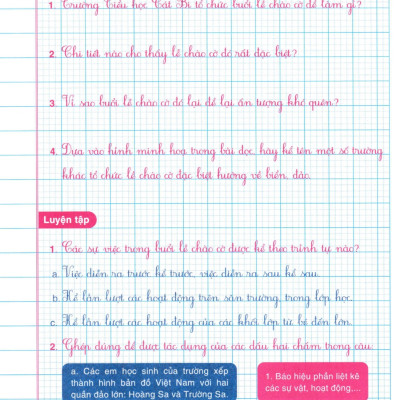 1. Trường Tiểu học Cát Bi tổ chức buổi lễ chào cờ để làm gì?
2. Chi tiết nào cho thấy lễ chào cờ đó rất đặc biệt?
3. Vì sao buổi lễ chào cờ đó lại để lại ấn tượng khó quên?
4. Dựa vào hình minh hoạ trong bài đọc, hãy kể tên một số trường
khác tổ chức lễ chào cờ đặc biệt hướng về biển, đảo.
Luyện tập
1. Các sự việc trong buổi lễ chào cờ được kể theo trình tự nào?
a. Việc diễn ra trước kể trước, việc diễn ra sau kể sau.
b. Kể lần lượt các hoạt động trên sân trường, trong lớp học.
c. Kể lần lượt các hoạt động của các khối lớp từ bé đến lớn.
2. Ghép đúng để được tác dụng của các dấu hai chấm trong câu.
a. Các em học sinh của trường xếp
thành hình bản đồ Việt Nam với hai
quần đảo lớn: Hoàng Sa và Trường Sa.
1. Báo hiệu phần liệt kê
các sự vật, hoạt động,...